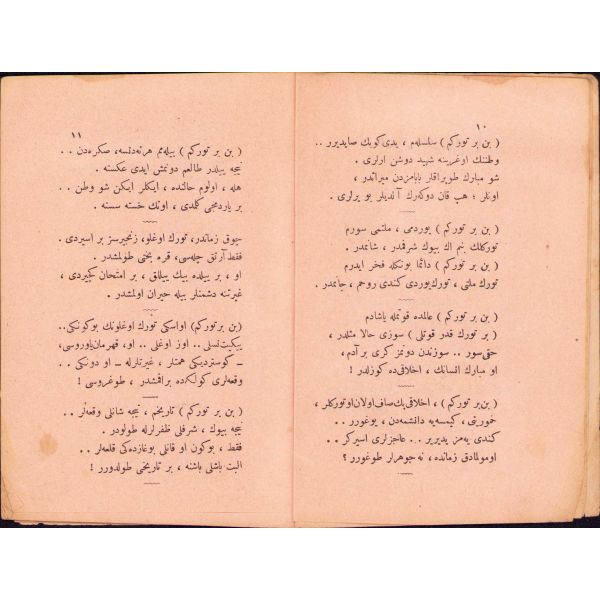 ١٠
( بن بر توركم ) سلسله‌م ، یدی كوبك صایدیرر . .
وطنك اوغرینه شهید دوشن ارلری .
شو مبارك طوپراقلر بابامزدن میراثدر ،
اونلر ؛ هپ قان دوكه‌رك آلدیلر بو یرلری .
( بن بر توركم ) یوردمی ، ملتمی سورم
توركلك بنم اك بیوك شرفمدر ، شانمدر .
( بن بر توركم ) دائما بونكله فخر ایدرم
تورك ملتی ، تورك یوردی كندی روحم ، جانمدر .
( بن بر توركم ) عالمده قوتمله یاشادم
( بر تورك قدر قوتلی ) سوزی حالا مثلدر ،
حقی سور . . سوزندن دونمز كری بر آدم ،
او مبارك انسانك ، اخلاقی‌ده كوزلدر !
( بن بر توركم ) ، اخلاقی پك صاف اولان او توركلر ،
خموری ، كیمسه‌یه دانشمه‌دن ، یوغورر . .
كندی یه‌مز یدیریر . . عاجزلری اسیركر . .
اومولمادق زمانده ، نه جوهرلر طوغورر ؟
١١
( بن بر توركم ) بیله‌مم هر نه‌دنسه ، صكره‌دن . .
نیجه ییلدر طالعم دونمش ایدی عكسنه .
هله ، اولوم حالنده ، ایكلر ایكن شو وطن . .
بر یاردمجی كلمدی ، اونك خسته سسنه .
چوق زماندر ، تورك اوغلو ، زنجیرسز بر اسیردی .
فقط آرتق چله‌سی ، قره بختی طولمشدر .
او ، بر ییلده بیك ییللق ، بر امتحان كچیردی ،
غیرتنه دشمنلر بیله حیران اولمشدر .
( بن بر توركم ) اواسكی تورك اوغلونك بوكونكی . .
ییكیت نسلی . . اوز اوغلی . . او ، قهرمان یاوروسی ،
ـ كوستردیكی همتلر ، غیرتلرله ـ او دونكی . .
وقعه‌لری كولكه‌ده براقمشدر ، طوغروسی !
( بن بر توركم ) تاریخم ، نیجه شانلی وقعه‌لر . .
نیجه بیوك ، شرفلی ظفرلرله طولودر .
فقط ، بوكون او قانلی بوغازده‌كی قلعه‌لر . .
البت باشلی باشنه ، بر تاریخی طولدورر !